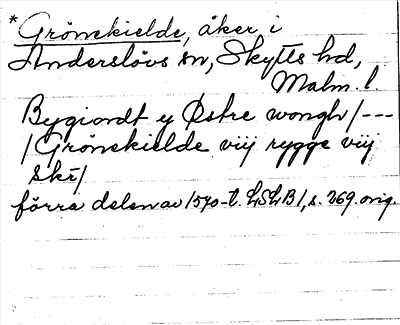 * Grönekielde, åker i
Anderslövs sn, Skytts hd,
Malm. l.
Bygiordt y Østre wongh/---
/Grönekielde viij rygge viij
Skr/
förra delen av 1570-t. LSLB 1, s. 269. orig.